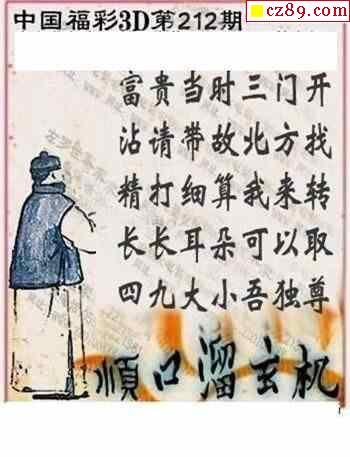 cz89.com
中国福彩3D第212期
富贵当时三门开
沾请带故北方找
精打细算我来转
长长耳朵可以取
四九大小吾独尊
順口溜玄机